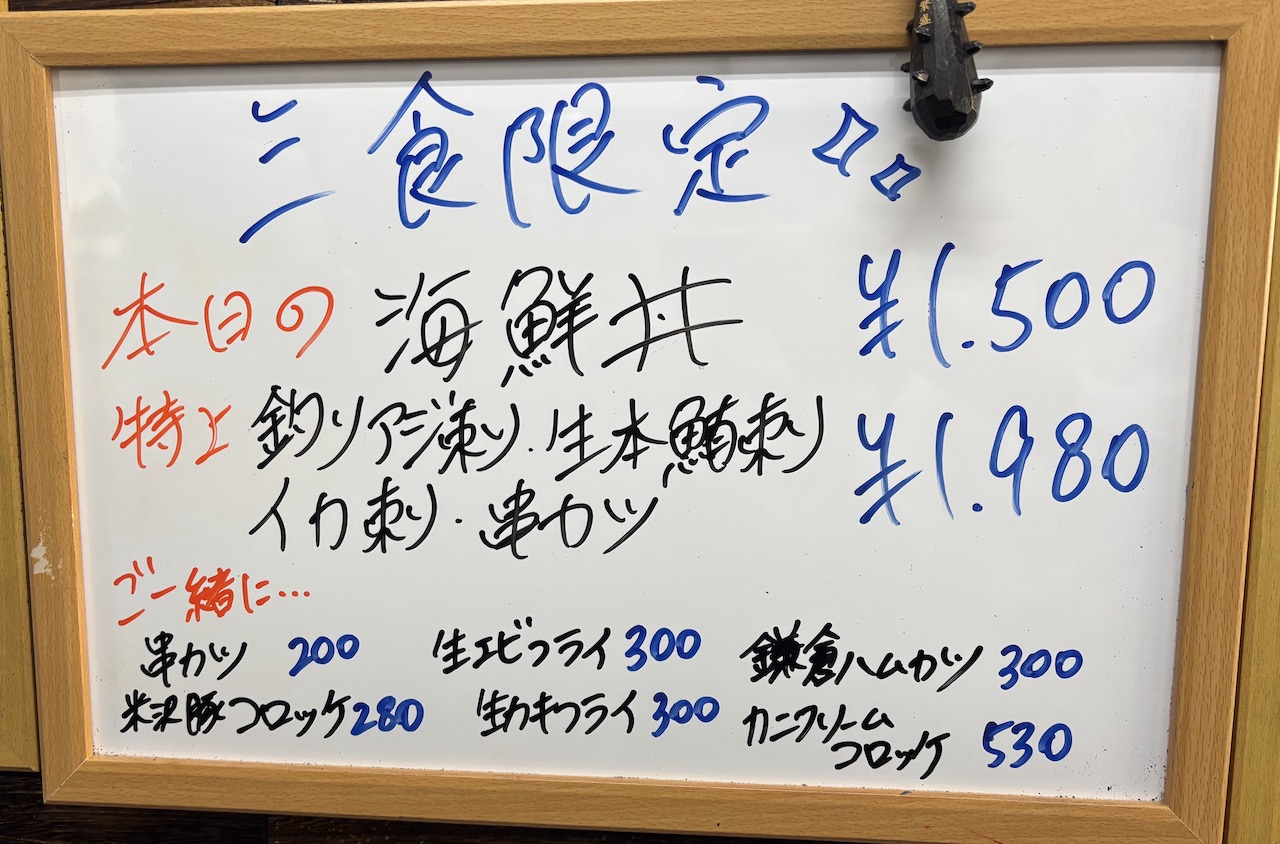 三食限定
本日の 海鮮丼 ¥1.500
特上 釣りアジ刺・生本鮪刺 ¥1.980
イカ刺・串カツ
ご一緒に…
串カツ 200 生エビフライ 300 鎌倉ハムカツ 300
米沢豚コロッケ 280 生カキフライ 300 カニクリーム
コロッケ 530